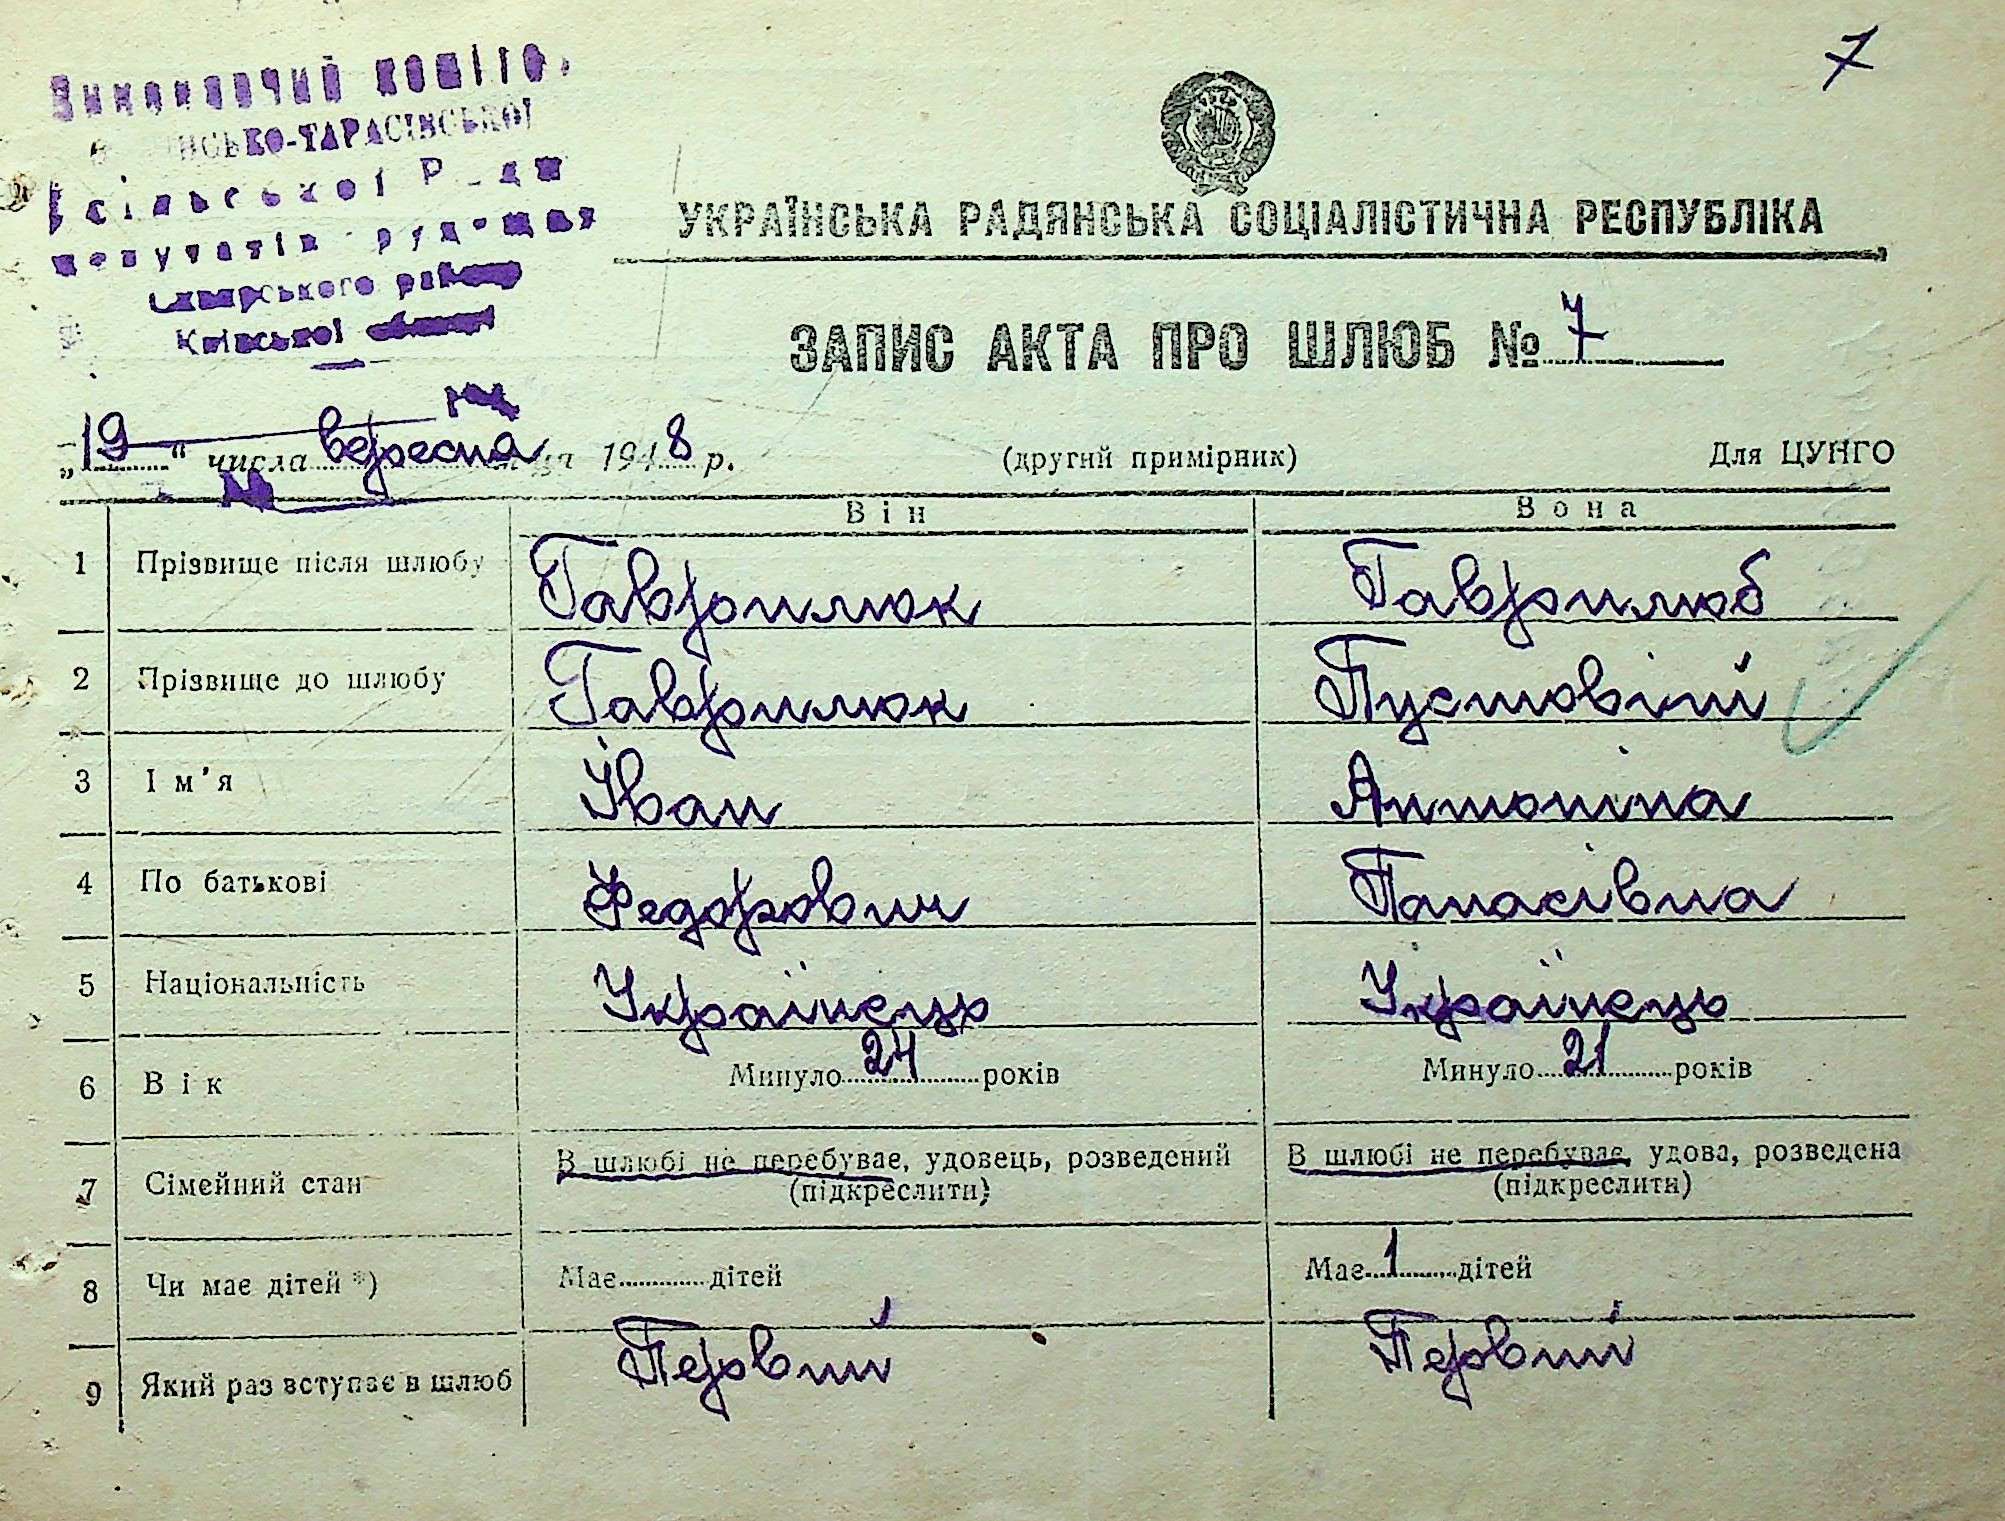 7
Виконавчий коміте
НСЬКО-ТАРАСІВСЬКОЇ
сільської Ради
депутатів трудящих
Сквирського району
Київської області
УКРАЇНСЬКА РАДЯНСЬКА СОЦІАЛІСТИЧНА РЕСПУБЛІКА
ЗАПИС АКТА ПРО ШЛЮБ № 7
„19“ числа вересня 1948 р. (другий примірник) Для ЦУНГО
Він Вона
1 Прізвище після шлюбу Гаврилюк Гаврилюб
2 Прізвище до шлюбу Гаврилюк Пустовіт
3 Ім'я Іван Антоніна
4 По батькові Федорович Панасівна
5 Національність Українець Українець
6 Вік Минуло 24 років Минуло 21 років
7 Сімейний стан В шлюбі не перебуває, удовець, розведений В шлюбі не перебуває, удова, розведена
(підкреслити) (підкреслити)
8 Чи має дітей *) Має дітей Має 1 дітей
9 Який раз вступає в шлюб Первий Первий